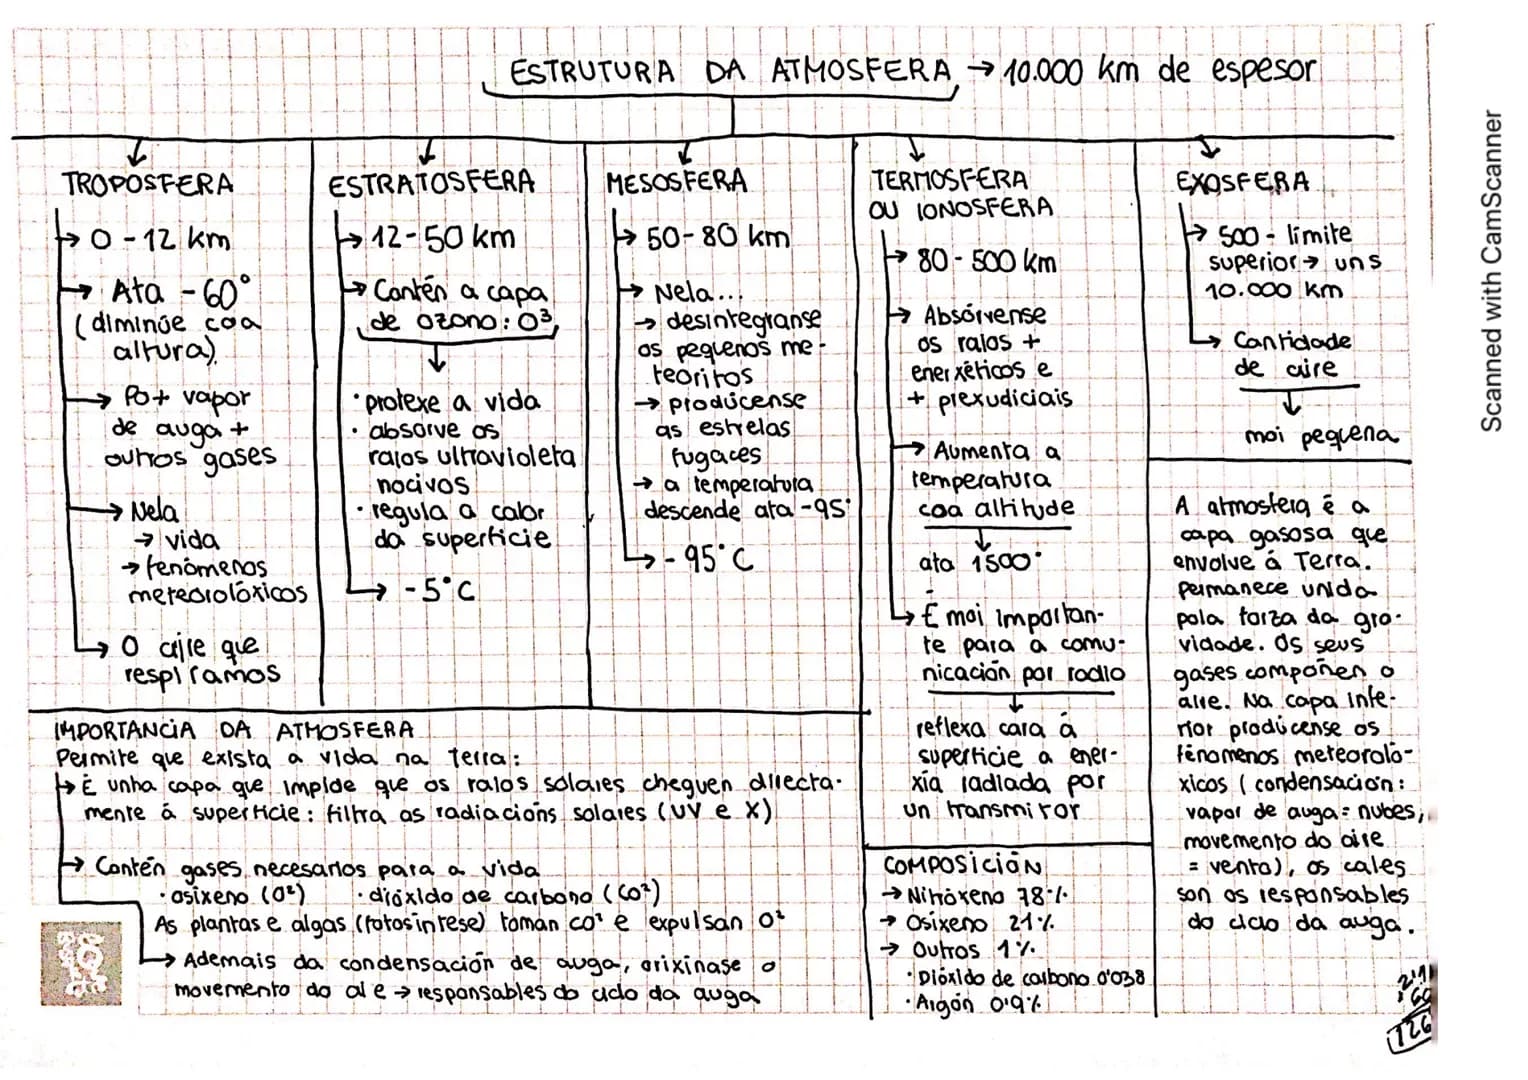 ESTRUTURA DA ATMOSFERA → 10.000 km de espesor
TROPOSFERA
→ 0-12 km
→ Ata -60°
(diminúe coa
altura)
→ Po+ vapor
de auga +
outros gases
→ Nela
→ vida
→ fenómenos
meteorolóxicos
→ O aire que
respiramos
ESTRATOSFERA
→ 12-50 km
→ Contén a capa
de ozono: O³
· protexe a vida
· absorve os
raios ultravioleta
nocivos
· regula a calor
da superficie
→ -5°C
MESOSFERA
→ 50-80 km
→ Nela...
→ desintegranse
os pequenos me-
teoritos
→ prodúcense
as estrelas
fugaces
→ a temperatura
descende ata -95°
→ -95°C
TERMOSFERA
OU IONOSFERA
→ 80-500 km
→ Absórvense
os raios +
enerxéticos e
+ prexudiciais
→ Aumenta a
temperatura
coa altitude
ata 1500°
→ É moi importan-
te para a comu-
nicación por radio
reflexa cara á
superficie a ener-
xía radiada por
un transmisor
EXOSFERA
→ 500 - límite
superior → uns
10.000 km
→ Cantidade
de aire
moi pequena
A atmosfera é a
capa gasosa que
envolve á Terra.
Permanece unida
pola forza da gra-
vidade. Os seus
gases compoñen o
aire. Na capa infe-
rior prodúcense os
fenomenos meteoroló-
xicos (condensación:
vapor de auga = nubes,
movemento do aire
= vento), os cales
son os responsables
do ciclo da auga.
IMPORTANCIA DA ATMOSFERA
Permite que exista a vida na Terra:
→ É unha capa que impide que os raios solares cheguen directa-
mente á superficie: filtra as radiacións solares (UV e X)
→ Contén gases necesarios para a vida
· osíxeno (O²) · dióxido de carbono (CO²)
As plantas e algas (fotosíntese) toman CO² e expulsan O²
→ Ademais da condensación de auga, orixínase o
movemento do aire → responsables do ciclo da auga
COMPOSICIÓN
→ Nitróxeno 78%
→ Osíxeno 21%
→ Outros 1%
· Dióxido de carbono 0'038
· Argón 0'9%
126
Scanned with CamScanner